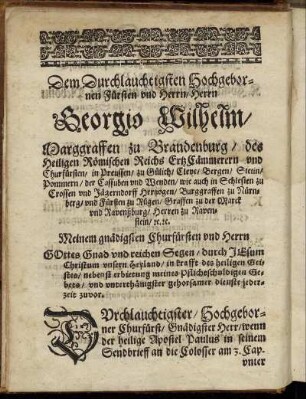 Dem Durchlauchtigsten Hochgebor-
nen Fürsten vnd Herrn/Herrn
Georgio Wilhelm/
Marggraffen zu Brandenburg/ des
Heiligen Römischen Reichs Ertz Cämmerern vnd
Churfürsten/ in Preussen/ zu Gülich/ Cleve/ Bergen/ Stetin/
Pommern/ der Cassuben vnd Wenden/ wie auch in Schlesien zu
Crossen vnd Jägerndorff Hertzogen/ Burggraffen zu Nürn-
berg/ vnd Fürsten zu Rügen/ Graffen zu der Marck
vnd Ravenßburg/ Herren zu Raven-
stein/ ꝛc.ꝛc.
Meinem gnädigsten Churfürsten vnd Herrn
GOttes Gnad vnd reichen Segen/ durch JEsum
Christum vnsern Heyland/ in krafft des heiligen Gei-
stes/ nebenst erbietung meines Pflichschuldigen Ge-
bets/ vnd vnterthänigster gehorsamer dienste jeder-
zeit zuvor.
DVrchlauchtigster/ Hochgebor-
ner Churfürst/ Gnädigster Herr/ wenn
der heilige Apostel Paulus in seinem
Sendbrieff an die Colosser am 3. Cap.
vnter